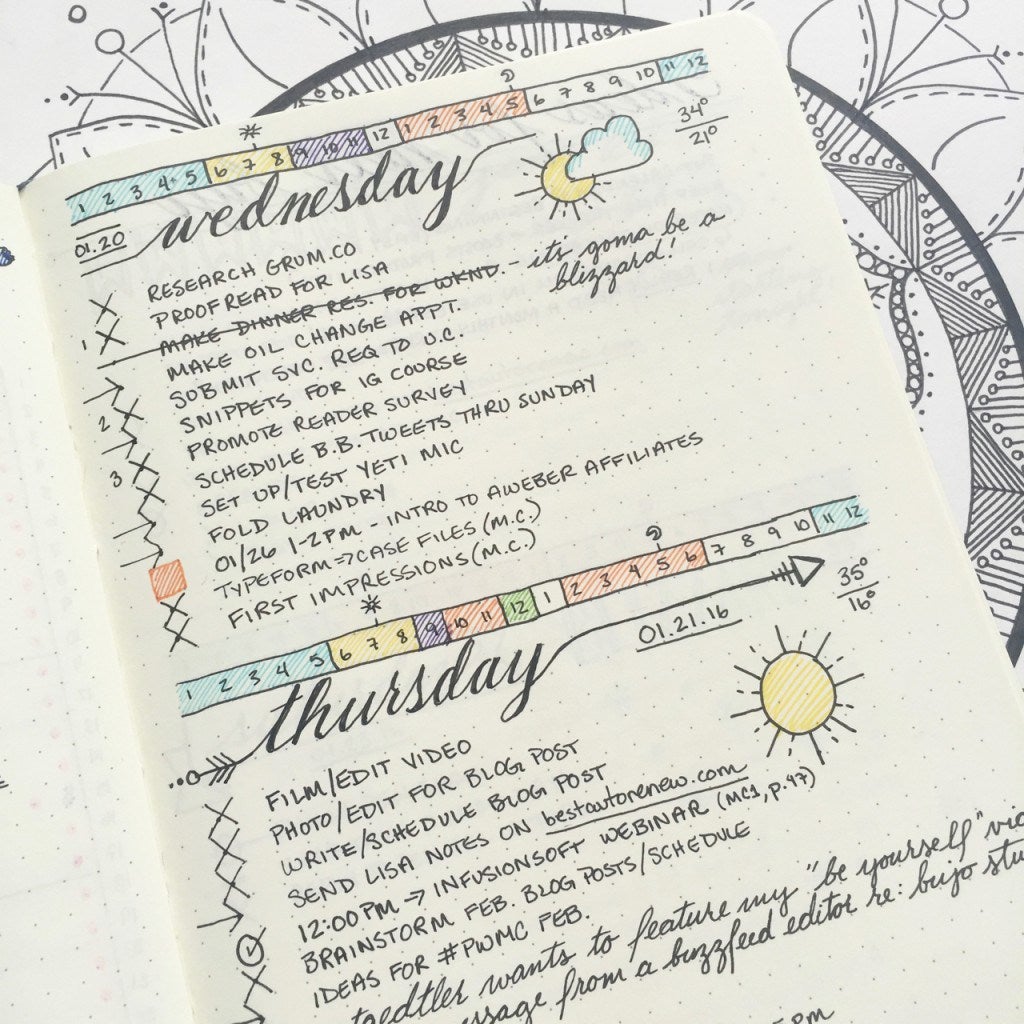 1 2 3 4 5 6 7 8 9 10 11 12 1 2 3 4 5 6 7 8 9 10 11 12
34°
21°
wednesday
01.20
RESEARCH GRUM.CO
PROOFREAD FOR LISA
MAKE DINNER RES. FOR WKND. - it's gonna be a
blizzard!
MAKE OIL CHANGE APPT.
SUBMIT SVC. REQ TO U.C.
SNIPPETS FOR IG COURSE
PROMOTE READER SURVEY
SCHEDULE B.B. TWEETS THRU SUNDAY
SET UP/TEST YETI MIC
FOLD LAUNDRY
01/26 1-2PM - INTRO TO AWEBER AFFILIATES
TYPEFORM => CASE FILES (M.C.)
FIRST IMPRESSIONS (M.C.)
1
2
3
1 2 3 4 5 6 7 8 9 10 11 12 1 2 3 4 5 6 7 8 9 10 11 12
35°
16°
01.21.16
thursday
FILM/EDIT VIDEO
PHOTO/EDIT FOR BLOG POST
WRITE/SCHEDULE BLOG POST
SEND LISA NOTES ON bestautorenew.com
12:00PM → INFUSIONSOFT WEBINAR (MC1, p.47)
BRAINSTORM FEB. BLOG POSTS/SCHEDULE
IDEAS FOR #PWMC FEB.
wants to feature my "be yourself"
from a buzzfeed editor re: bujo
PM